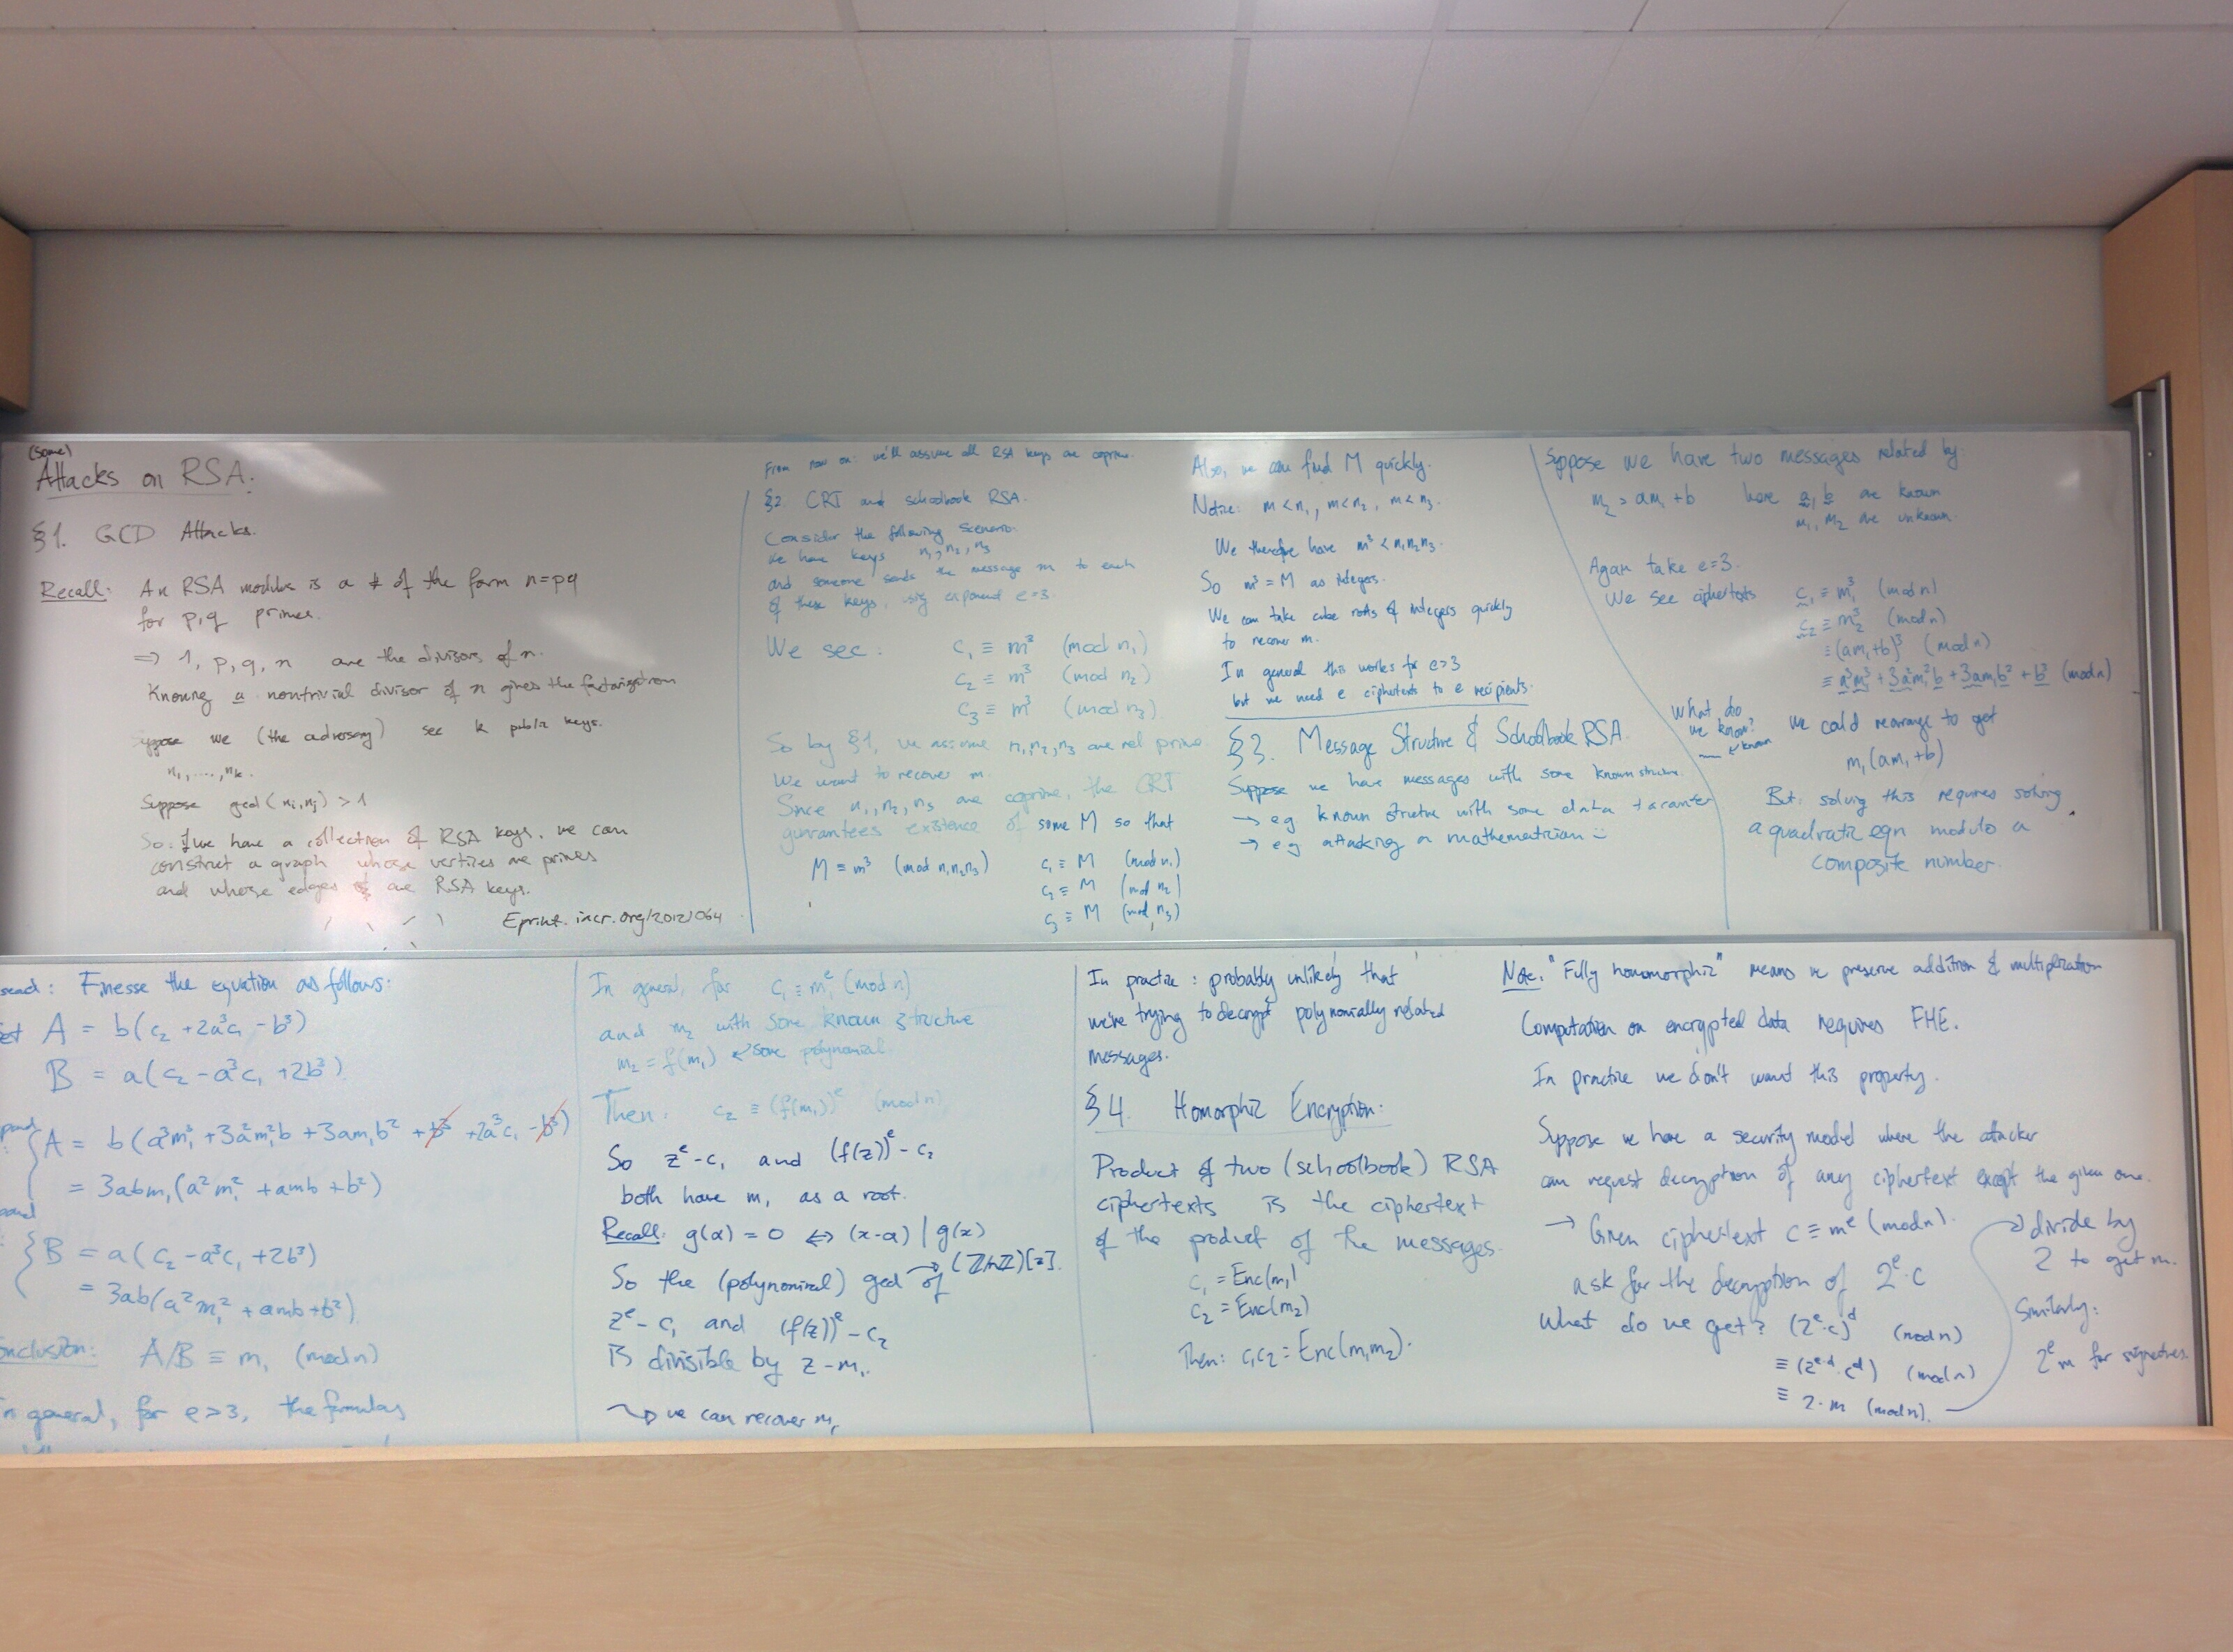 (some)
Attacks on RSA:
§1. GCD Attacks.
Recall: An RSA modulus is a # of the form n=pq
for p,q primes.
⇒ 1, p, q, n are the divisors of n.
Knowing a nontrivial divisor of n gives the factorization
Suppose we (the adversary) see k public keys.
n₁,....,nₖ.
Suppose gcd(nᵢ,nⱼ) > 1
So: If we have a collection of RSA keys, we can
construct a graph whose vertices are primes
and whose edges are RSA keys.
Eprint.iacr.org/2012/064
From now on: we'll assume all RSA keys are coprime.
§2. CRT and schoolbook RSA.
Consider the following scenario.
We have keys n₁, n₂, n₃
and someone sends the message m to each
of these keys, using exponent e=3.
We see: c₁ ≡ m³ (mod n₁)
c₂ ≡ m³ (mod n₂)
c₃ ≡ m³ (mod n₃)
So by §1, we assume n₁,n₂,n₃ are rel prime.
We want to recover m.
Since n₁,n₂,n₃ are coprime, the CRT
guarantees existence of some M so that
M ≡ m³ (mod n₁n₂n₃) c₁ ≡ M (mod n₁)
c₂ ≡ M (mod n₂)
c₃ ≡ M (mod n₃)
Also, we can find M quickly.
Notice: m<n₁, m<n₂, m<n₃.
We therefore have m³ < n₁n₂n₃.
So m³ = M as integers.
We can take cube roots of integers quickly
to recover m.
In general this works for e>3
but we need e ciphertexts to e recipients.
§3. Message Structure & Schoolbook RSA.
Suppose we have messages with some known structure.
→ eg known structure with some data
→ eg attacking a mathematician
Suppose we have two messages related by:
m₂ = am₁+b here a, b are known
m₁, m₂ are unknown.
Again take e=3.
We see ciphertexts c₁ ≡ m₁³ (mod n)
c₂ ≡ m₂³ (mod n)
≡ (am₁+b)³ (mod n)
≡ a³m₁³ + 3a²m₁²b + 3am₁b² + b³ (mod n)
What do
we know?
known
We could rearrange to get
m₁(am₁+b)
But: solving this requires solving
a quadratic eqn modulo a
composite number.
Finesse the equation as follows:
A = b(c₂ +2a³c₁ -b³)
B = a(c₂ -a³c₁ +2b³)
A = b(a³m₁³ +3a²m₁²b +3am₁b² +b³ +2a³c₁ -b³)
= 3abm₁(a²m₁² +am₁b +b²)
B = a(c₂ -a³c₁ +2b³)
= 3ab(a²m₁² +am₁b +b²)
A/B ≡ m₁ (mod n)
general, for e>3, the formulas
In general, for c₁ ≡ m₁ᵉ (mod n)
and m₂ with some known structure
m₂ = f(m₁) ← some polynomial
Then: c₂ ≡ (f(m₁))ᵉ (mod n)
So zᵉ-c₁ and (f(z))ᵉ-c₂
both have m₁ as a root.
Recall: g(α) = 0 ⇔ (x-α) | g(x)
So the (polynomial) gcd of → (Z/nZ)[z].
zᵉ-c₁ and (f(z))ᵉ-c₂
is divisible by z-m₁.
we can recover m₁
In practice: probably unlikely that
we're trying to decrypt polynomially related
messages.
§4. Homorphic Encryption:
Product of two (schoolbook) RSA
ciphertexts is the ciphertext
of the product of the messages.
c₁ = Enc(m₁)
c₂ = Enc(m₂)
Then: c₁c₂ = Enc(m₁m₂).
Note: "Fully homomorphic" means we preserve addition & multiplication
Computation on encrypted data requires FHE.
In practice we don't want this property.
Suppose we have a security model where the attacker
can request decryption of any ciphertext except the given one.
→ Given ciphertext c ≡ mᵉ (mod n).
ask for the decryption of 2ᵉ·c
What do we get? (2ᵉ·c)ᵈ (mod n)
≡ (2ᵉ·ᵈ·cᵈ) (mod n)
≡ 2·m (mod n).
divide by
2 to get m.
Similarly:
2ᵉm for signatures.